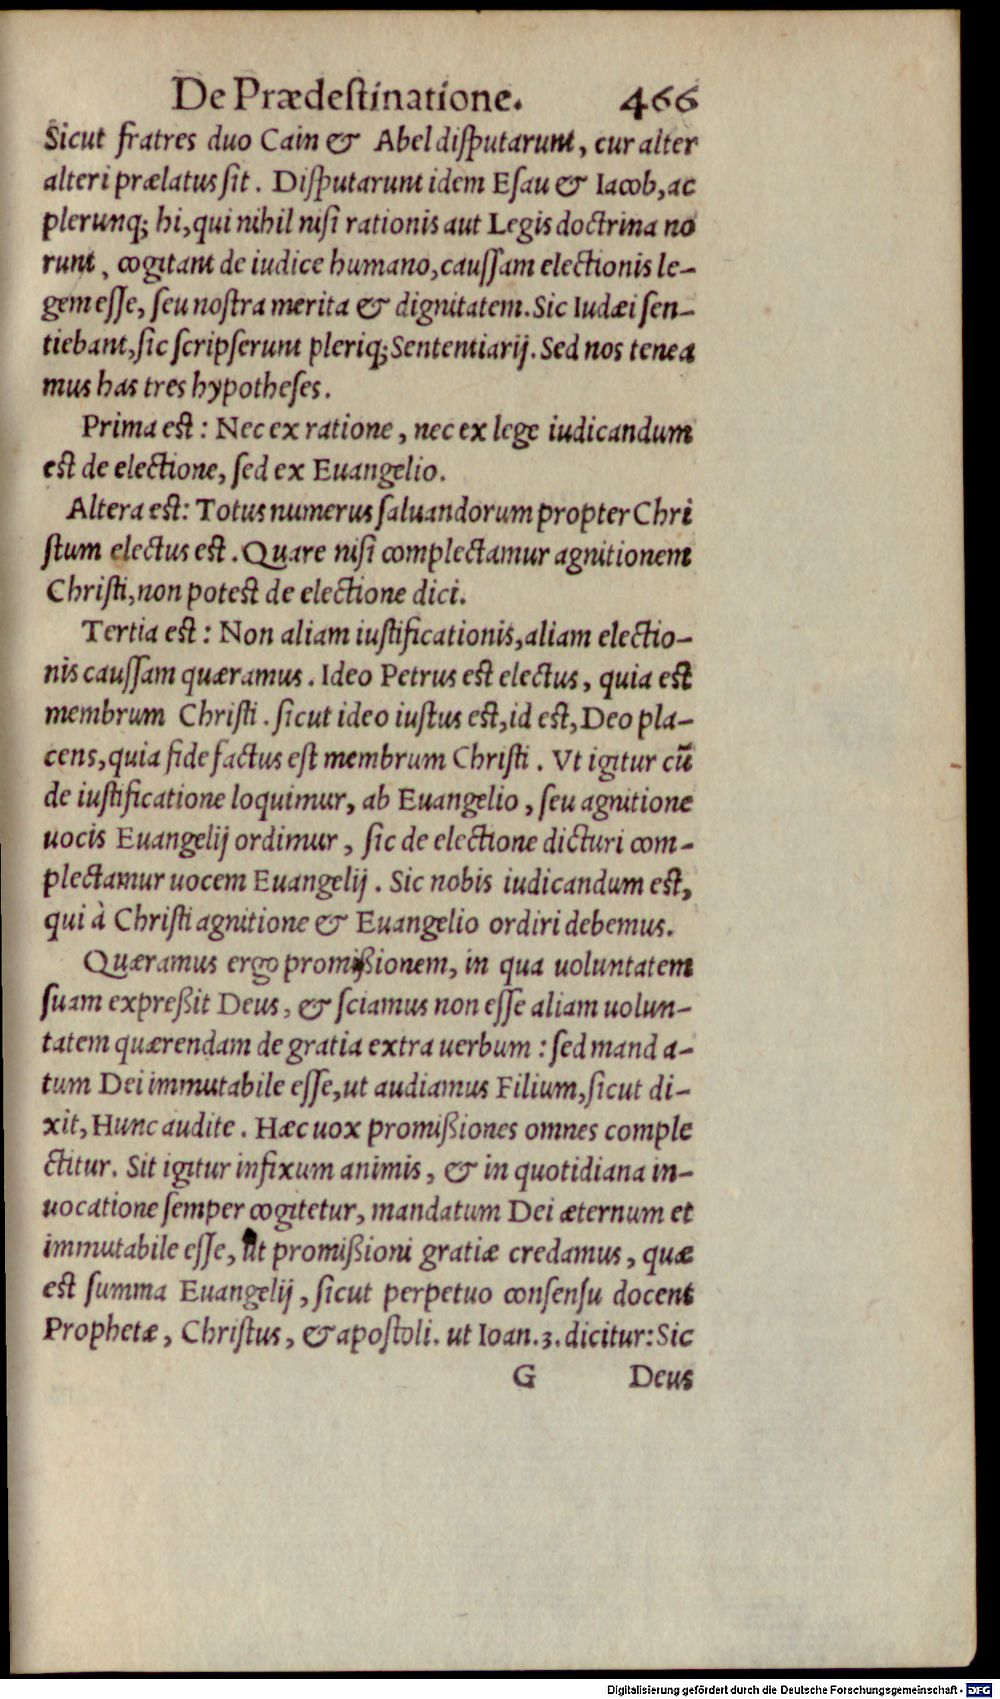 De Prædestinatione. 466
Sicut fratres duo Cain & Abel disputarunt, cur alter
alteri prælatus sit. Disputarunt idem Esau & Iacob, ac
plerunq; hi, qui nihil nisi rationis aut Legis doctrina no
runt, cogitant de iudice humano, caussam electionis le-
gem esse, seu nostra merita & dignitatem. Sic Iudæi sen-
tiebant, sic scripserunt pleriq; Sententiarij. Sed nos tenea
mus has tres hypotheses.
Prima est: Nec ex ratione, nec ex lege iudicandum
est de electione, sed ex Euangelio.
Altera est: Totus numerus saluandorum propter Chri
stum electus est. Quare nisi complectamur agnitionem
Christi, non potest de electione dici.
Tertia est: Non aliam iustificationis, aliam electio-
nis caussam quæramus. Ideo Petrus est electus, quia est
membrum Christi. sicut ideo iustus est, id est, Deo pla-
cens, quia fide factus est membrum Christi. Vt igitur cũ
de iustificatione loquimur, ab Euangelio, seu agnitione
uocis Euangelij ordimur, sic de electione dicturi com-
plectamur uocem Euangelij. Sic nobis iudicandum est,
qui à Christi agnitione & Euangelio ordiri debemus.
Quæramus ergo promißionem, in qua uoluntatem
suam expreßit Deus, & sciamus non esse aliam uolun-
tatem quærendam de gratia extra uerbum: sed manda-
tum Dei immutabile esse, ut audiamus Filium, sicut di-
xit, Hunc audite. Hæc uox promißiones omnes comple
ctitur. Sit igitur infixum animis, & in quotidiana in-
uocatione semper cogitetur, mandatum Dei æternum et
immutabile esse, ut promißioni gratiæ credamus, quæ
est summa Euangelij, sicut perpetuo consensu docent
Prophetæ, Christus, & apostoli. ut Ioan. 3. dicitur: Sic
G Deus
Digitalisierung gefördert durch die Deutsche Forschungsgemeinschaft - DFG